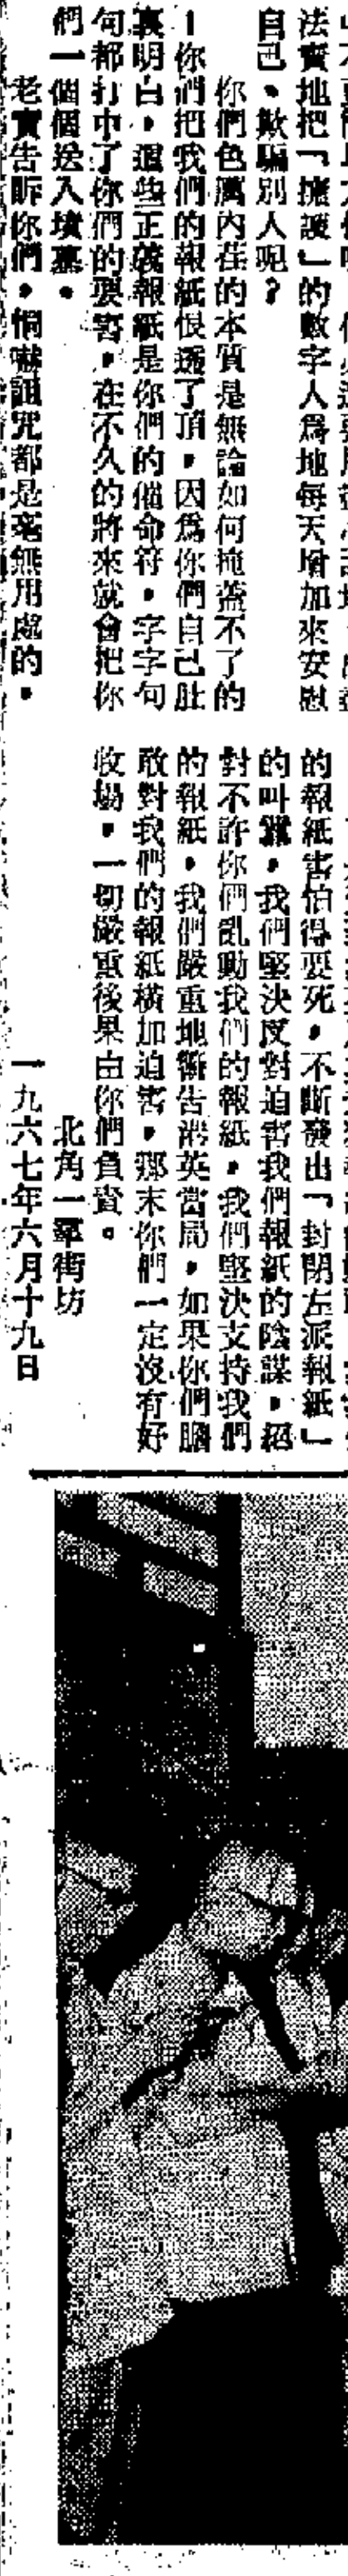 法寶地把「擁護」的數字人爲地每天增加來安慰
自己、欺騙別人呢?
你們色厲內荏的本質是無論如何掩蓋不了的
!你們把我們的報紙恨透了頂,因爲你們自己肚
裏明白,這些正義報紙是你們的催命符,字字句
句都打中了你們的要害,在不久的將來就會把你
們一個個送入墳墓。
老實告訴你們,恫嚇詛咒都是毫無用處的。
的報紙害怕得要死,不斷發出「封閉左派報紙」
的叫囂,我們堅決反對迫害我們報紙的陰謀,絕
對不許你們亂動我們的報紙。我們堅決支持我們
的報紙,我們嚴重地警告港英當局,如果你們膽
敢對我們的報紙橫加迫害,那末你們一定沒有好
收場。一切嚴重後果由你們負責。
北角一羣街坊
一九六七年六月十九日